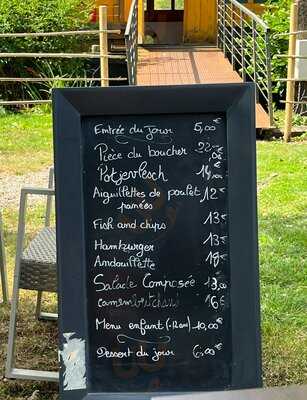 Entrée du jour 5,00
Pièce du boucher 22,00€
Potjevlesch
Aiguillettes de poulet panées 12€
Fish and chips 13€
Hamburger 13€
Andouillette
Salade Composée
camembert chaud 16€
Menu enfant (-12 ans) 10,00€
Dessert du jour 6,00€